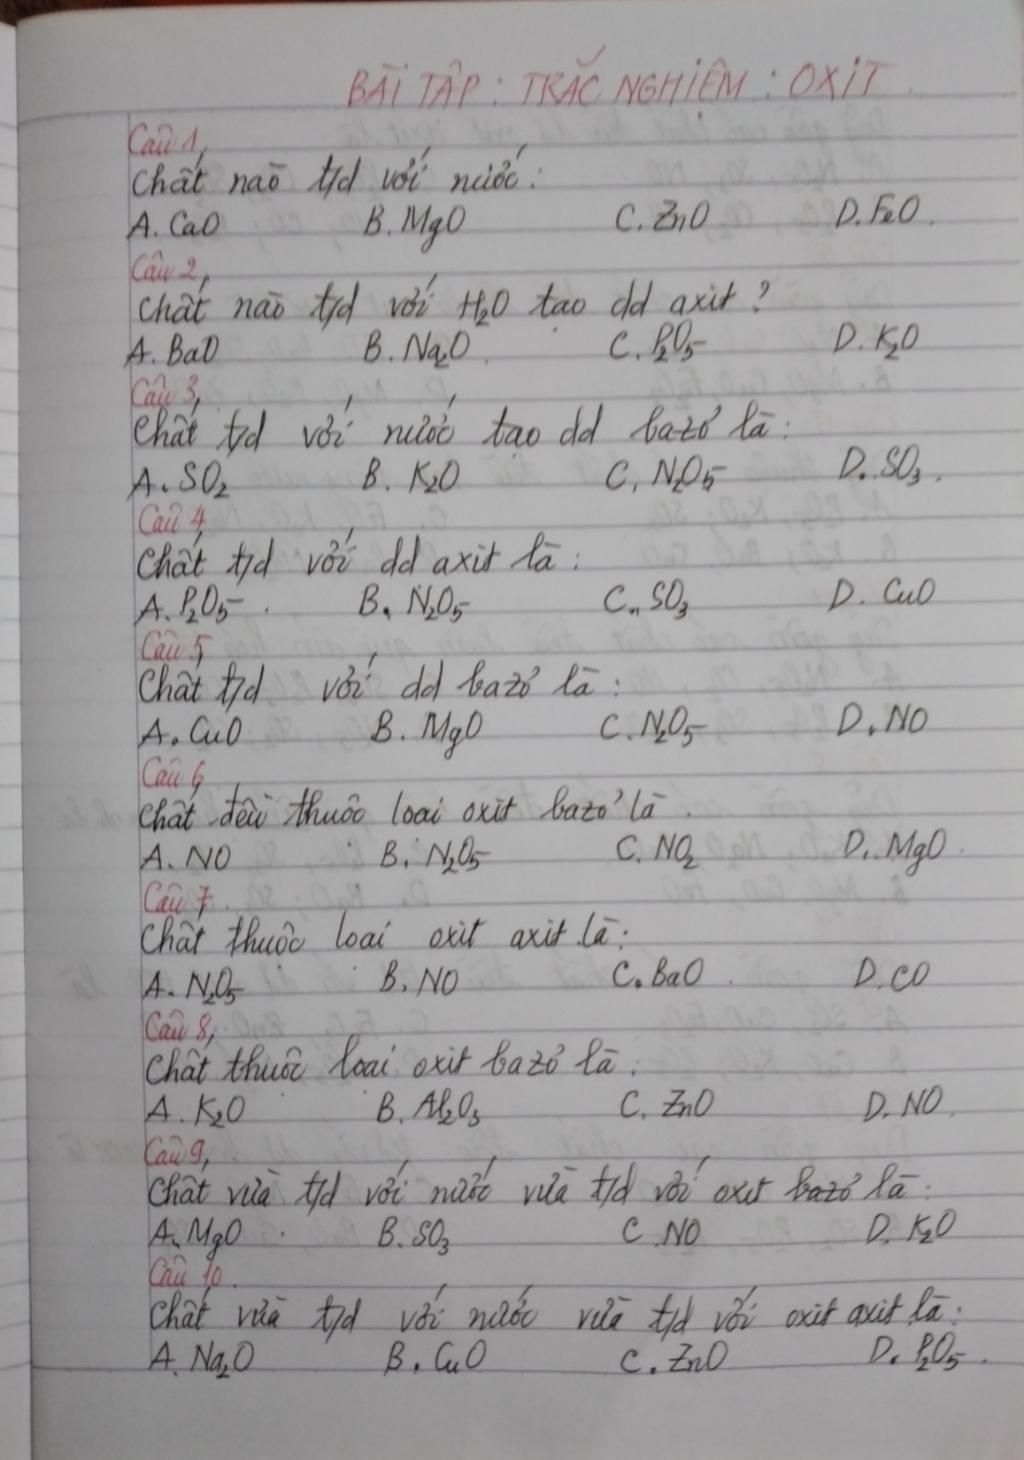 BÀI TẬP : TRẮC NGHIỆM : OXIT
Câu 1,
Chất nào t/d với nước :
A. CaO B. MgO C. ZnO D. FeO.
Câu 2,
Chất nào t/d với H₂O tạo dd axit ?
A. BaO B. Na₂O C. P₂O₅ D. K₂O
Câu 3,
Chất t/d với nước tạo dd bazơ là :
A. SO₂ B. K₂O C. N₂O₅ D. SO₃.
Câu 4
Chất t/d với dd axit là :
A. P₂O₅ . B. N₂O₅ C. SO₃ D. CuO
Câu 5
Chất t/d với dd bazơ là :
A. CuO B. MgO C. N₂O₅ D. NO
Câu 6
Chất đều thuộc loại oxit bazơ là .
A. NO B. N₂O₅ C. NO₂ D. MgO.
Câu 7.
Chất thuộc loại oxit axit là :
A. N₂O₅ B. NO C. BaO D. CO
Câu 8,
Chất thuộc loại oxit bazơ là :
A. K₂O B. Al₂O₃ C. ZnO D. NO.
Câu 9,
Chất vừa t/d với nước vừa t/d với oxit bazơ là :
A. MgO B. SO₃ C. NO D. K₂O
Câu 10.
Chất vừa t/d với nước vừa t/d với oxit axit là :
A. Na₂O B. CuO C. ZnO D. P₂O₅.